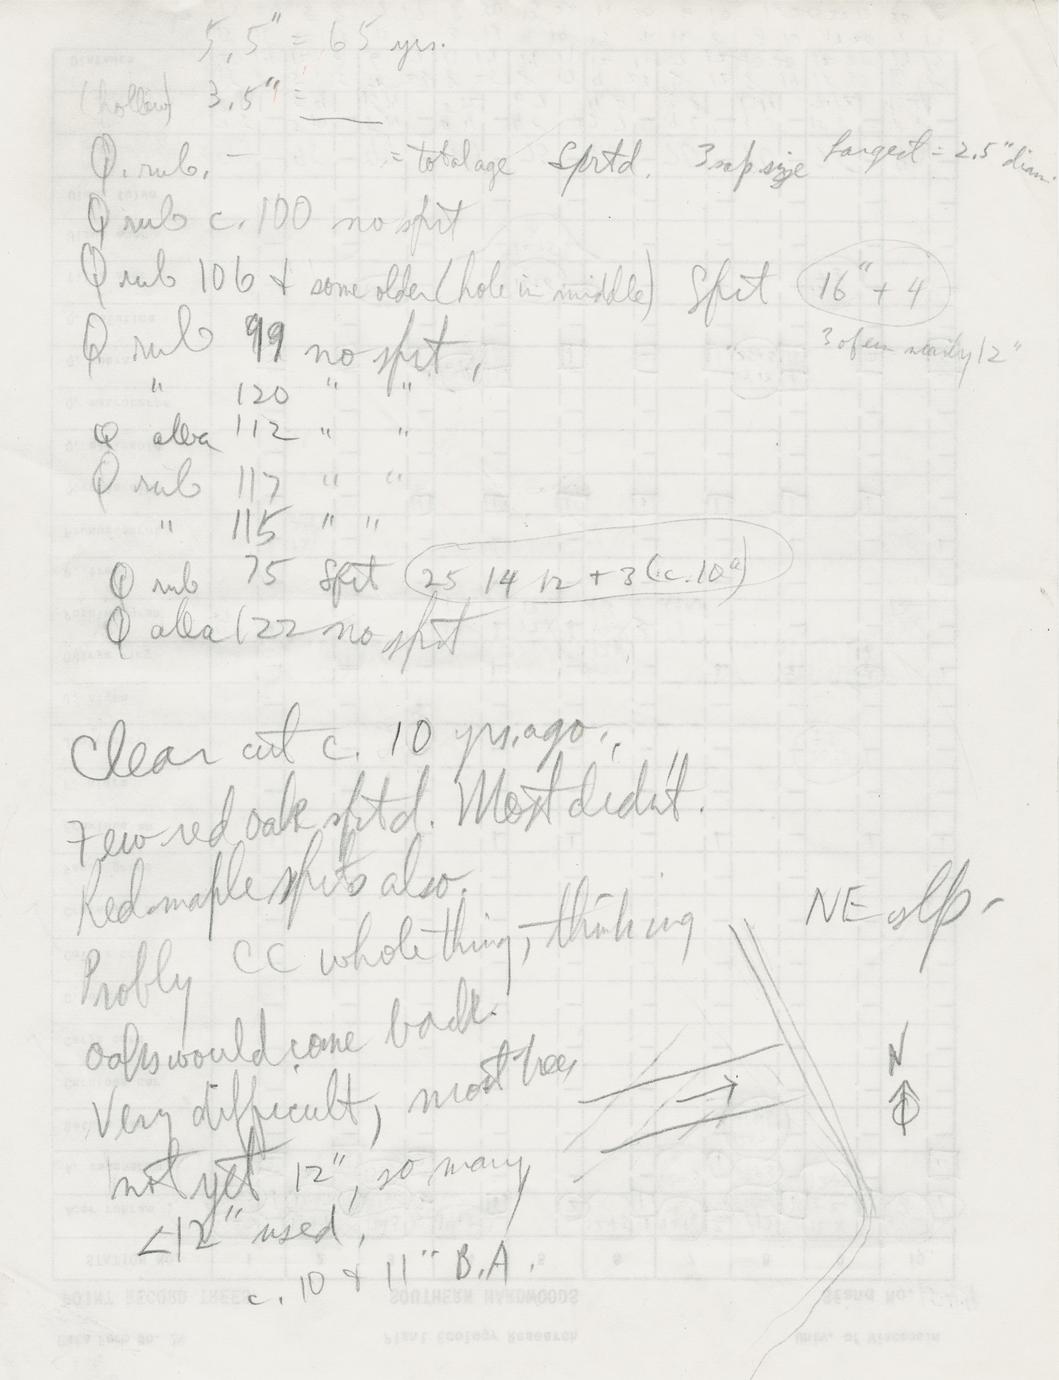 5.5" = 65 yrs.
(hollow) 3.5" =
Q. rub. - = total age Sprtd. 3 sap size Largest = 2.5" diam.
Q rub c. 100 no sprt
Q rub 106 + some older (hole in middle) Sprt 16" + 4
Q rub 99 no sprt, 3 of em nearly 12"
" 120 " "
Q alba 112 " "
Q rub 117 " "
" 115 " "
Q rub 75 Sprt 25 14 12 + 3 (c. 10")
Q alba 122 no sprt
Clear cut c. 10 yrs. ago.
Few red oak sprtd. Most didn't.
Red maple sprts also.
Probly CC whole thing, thinking
NE slp -
oaks would come back.
N
Very difficult, most trees
not yet 12", so many
<12" used,
c. 10 + 11" B.A.
STATION NO. 1 2 5 6 7 8 10
POINT RECORD TREES SOUTHERN HARDWOODS Stand No.
Plant Ecology Research Univ. of Wisconsin